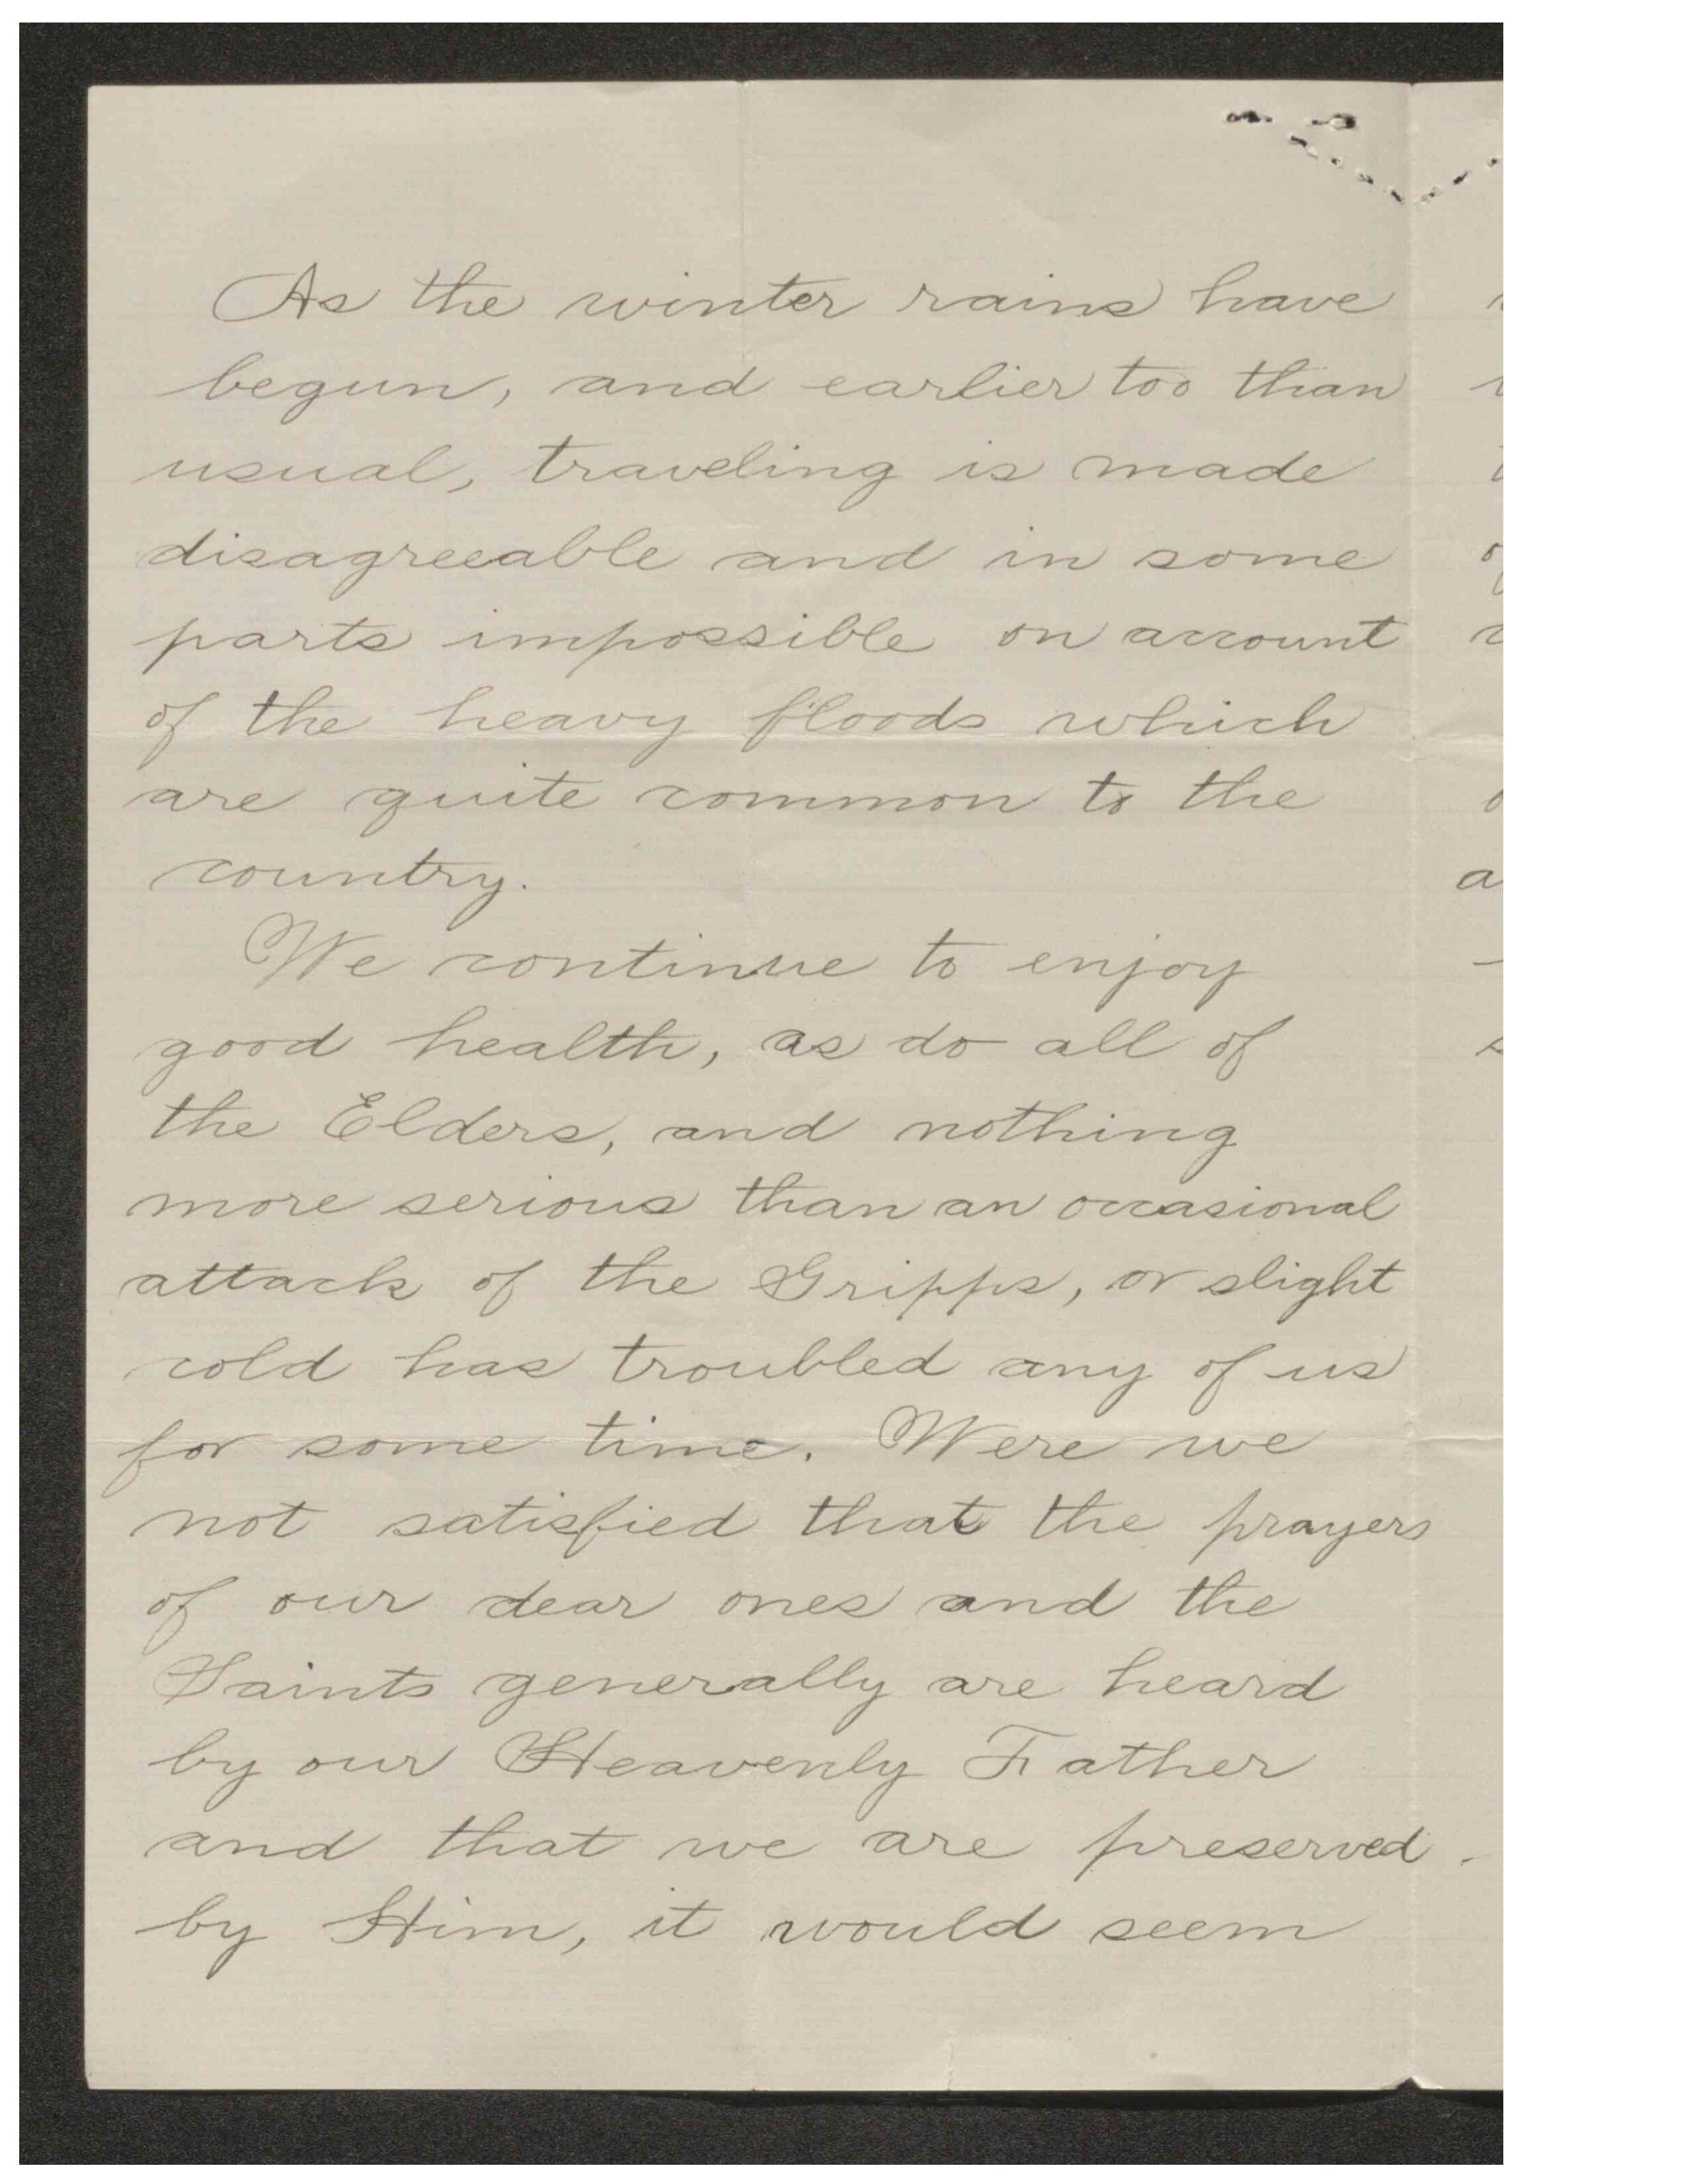 As the winter rains have
begun, and earlier too than
usual, traveling is made
disagreeable and in some
parts impossible on account
of the heavy floods which
are quite common to the
country.
We continue to enjoy
good health, as do all of
the Elders, and nothing
more serious than an occasional
attack of the Gripps, or slight
cold has troubled any of us
for some time. Were we
not satisfied that the prayers
of our dear ones and the
Saints generally are heard
by our Heavenly Father
and that we are preserved
by Him, it would seem